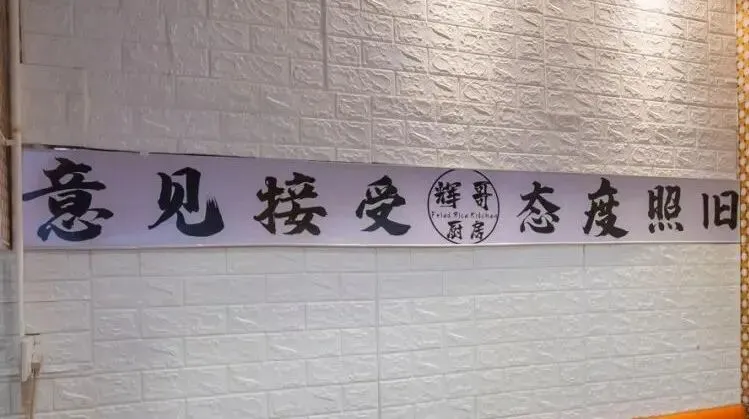 意见接受 态度照旧
辉哥
Fried Rice Kitchen
厨房